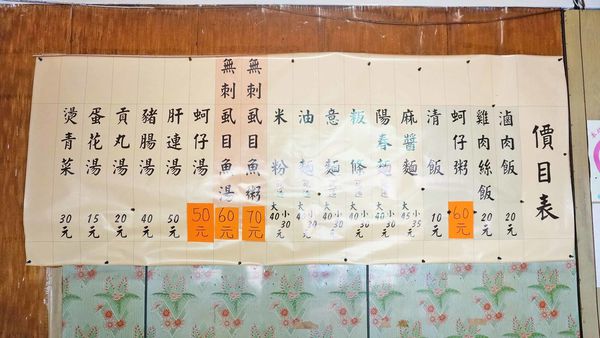 價目表
滷肉飯 20元
雞肉絲飯 20元
蚵仔粥 60元
清飯 10元
麻醬麵 大45 小35元
陽春麵 大40 小30元
粄條 大40 小30元
意麵 大40 小30元
油麵 大40 小30元
米粉 大40 小30元
無刺虱目魚粥 70元
無刺虱目魚湯 60元
蚵仔湯 50元
肝連湯 50元
豬腸湯 40元
貢丸湯 20元
蛋花湯 15元
燙青菜 30元